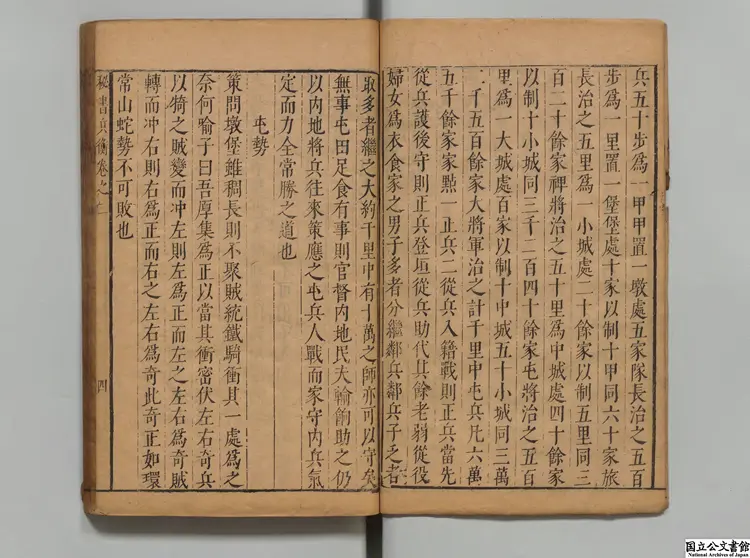 兵五十步爲一甲甲置一墩處五家隊長治之五百
步爲一里置一堡堡處十家以制十甲同六十家旅
長治之五里爲一小城處二十餘家以制五里同三
百二十餘家裨將治之五十里爲中城處四十餘家
以制十小城同三千二百四十餘家屯將治之五百
里爲一大城處百家以制十中城五十小城同三萬
二千五百餘家大將軍治之計千里中屯兵凡六萬
五千餘家家㸃一正兵二從兵入籍戰則正兵當先
從兵護後守則正兵登垣從兵助代其餘老弱從役
婦女爲衣食家之男子多者分繼鄰兵鄰兵子之者
取多者繼之大約千里中有十萬之師亦可以守矣
無事屯田足食有事則官督内地民夫輸餉助之仍
以内地將兵往來策應之屯兵人戰而家守内兵氣
定而力全常勝之道也
屯勢
策問墩堡雖稠長則不聚賊統鐵騎衝其一處爲之
奈何喻子曰吾厚集爲正以當其衝密伏左右奇兵
以犄之賊變而冲左則左爲正而左之左右爲奇賊
轉而冲右則右爲正而右之左右爲奇此奇正如環
常山蛇勢不可敗也
秘書兵衡卷之二
四
国立公文書館
National Archives of Japan